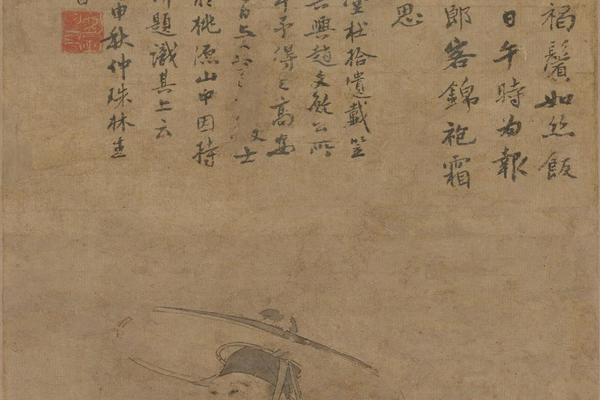 褐鬢如絲飯
日午時為報
郎客錦袍霜
思
杜拾遺戴笠
興趙文敏公所
予得之高安
文士
桃源山中因持
題識其上云
申秋仲珠林生